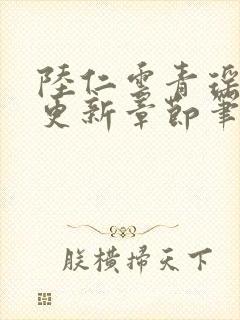 陸仁雲青瑶
更新章節筆
朕橫掃天下